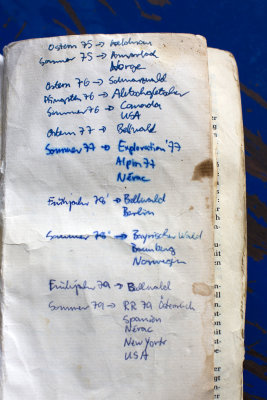 Ostern 75 →
Sommer 75 →
Norge
Ostern 76 → Schwarzwald
Pfingsten 76 →
Sommer 76 → Canada
USA
Ostern 77 → Bellwald
Sommer 77 → Exploration '77
Alpin 77
Nérac
Frühjahr 78' → Bellwald
Berlin
Sommer 78' → Bayrischer Wald
Bamberg
Norwegen
Frühjahr 79 → Bellwald
Sommer 79 → RR 79 Österreich
Spanien
Nérac
New York
USA